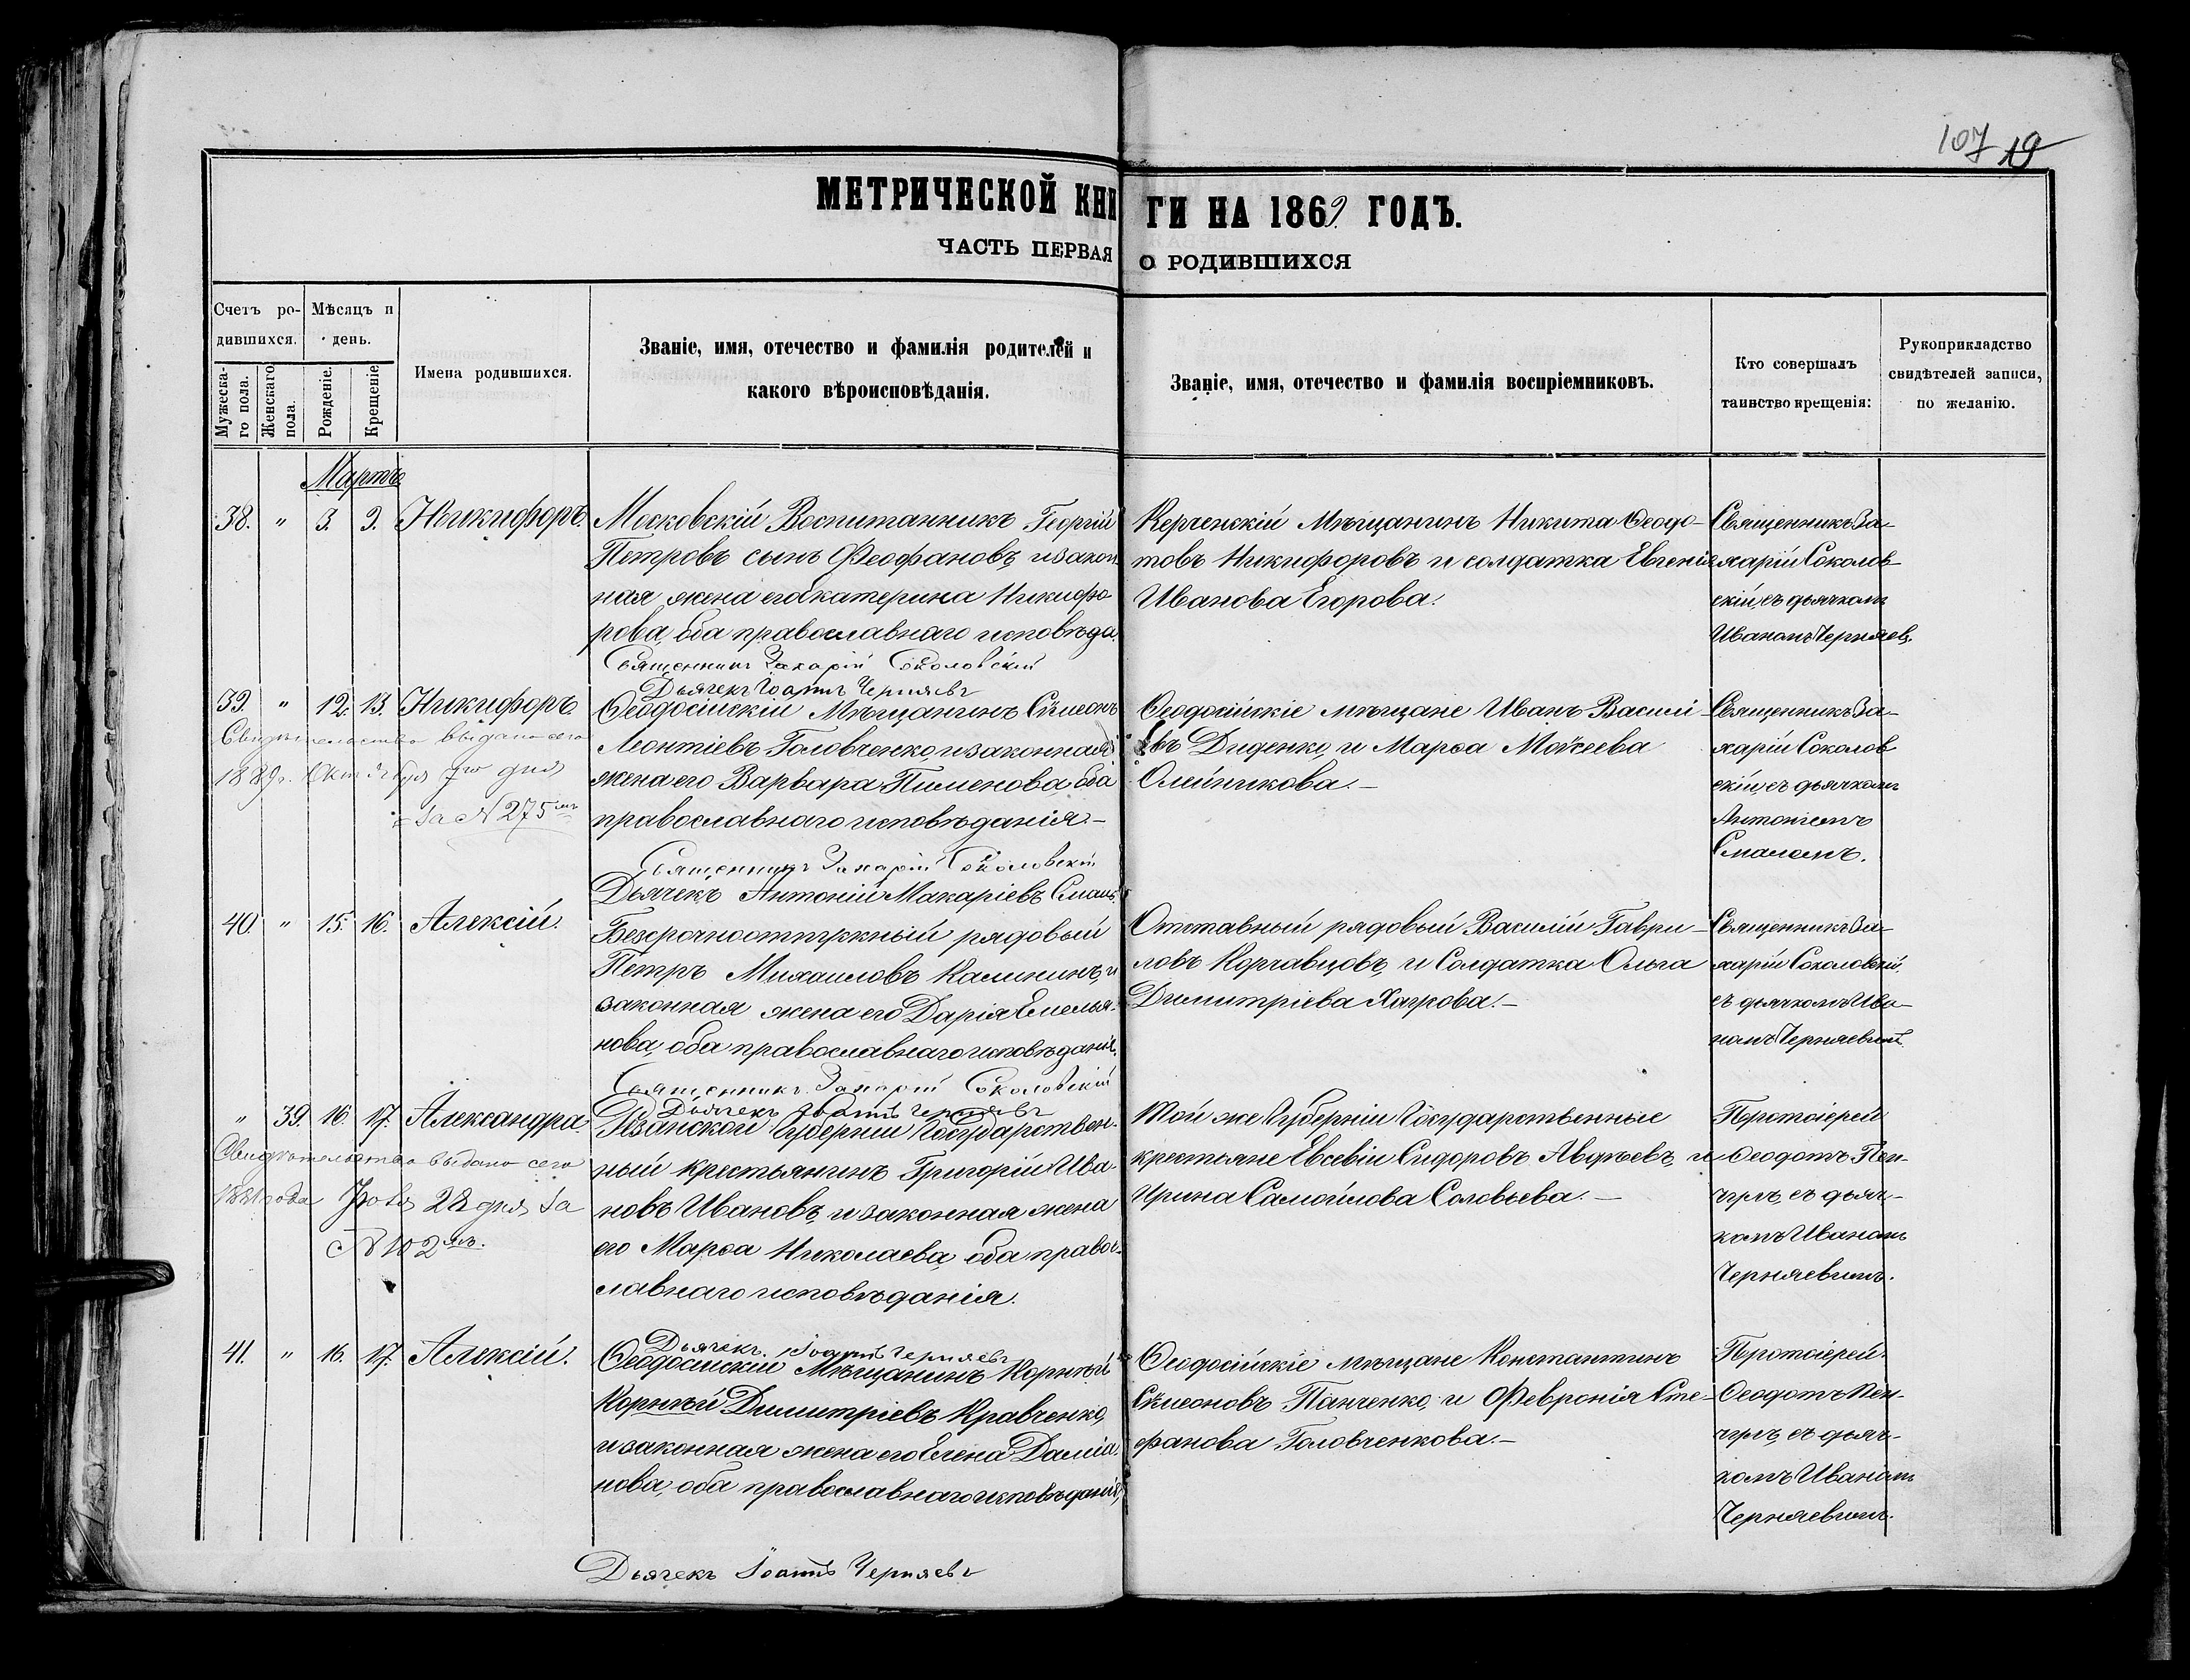 107 19
МЕТРИЧЕСКОЙ КНИГИ НА 1869 ГОДЪ.
ЧАСТЬ ПЕРВАЯ О РОДИВШИХСЯ
Счетъ родившихся.
Мужескаго пола.
Женскаго пола.
Мѣсяцъ и день.
Рожденіе.
Крещеніе
Имена родившихся.
Званіе, имя, отечество и фамилія родителей и
какого вѣроисповѣданія.
Званіе, имя, отечество и фамилія воспріемниковъ.
Кто совершалъ
таинство крещенія:
Рукоприкладство
свидѣтелей записи,
по желанію.
Мартъ
38. " 3. 9. Никифоръ.
Московскій Воспитанникъ Георгій
Петровъ сынъ Феофановъ, и закон
ная жена его Екатерина Никифо
рова, оба православнаго исповѣда.
Священникъ Захарій Соколовскій
Дьячекъ Іоаннъ Черняевъ
Керченскій Мѣщанинъ Никита Ѳеодо-
товъ Никифоровъ и солдатка Евгенія
Иванова Егорова.
Священникъ За-
харій Соколов-
скій, съ дьячкомъ
Иваномъ Черняев.
39. " 12. 13. Никифоръ.
Свидѣтельство выдано сего
1889г. Октября 7го дня
за № 275мъ
Ѳеодосійскій Мѣщанинъ Сѵмеонъ
Леонтіевъ Головченко, и законная
жена его Варвара Пименова, оба
православнаго исповѣданія.-
Священникъ Захарій Соколовскій
Дьячекъ Антоній Макаріевъ Смаль
Ѳеодосійскіе мѣщане Иванъ Василі-
евъ Диденко, и Марѳа Моѵсеева
Олейникова.-
Священникъ За-
харій Соколов
скій, съ дьячкомъ
Антоніемъ
Смалемъ.
40. " 15. 16. Алексій.
Безсрочноотпускный рядовый
Петръ Михаиловъ Калининъ, и
законная жена его Дарія Емелья-
нова, оба православнаго исповѣданія.
Священникъ Захарій Соколовскій
Дьячекъ Іоаннъ Черняевъ
Отставный рядовый Василій Гаври-
ловъ Корчавцовъ, и Солдатка Ольга
Димитріева Хагрова.-
Священникъ За-
харій Соколовскій,
съ дьячкомъ Ива-
номъ Черняевымъ.
" 39. 16. 17. Александра.
Свидѣтельство выдано сего
года 28 дня за
№ 102мъ.
Рязанской Губерніи Государствен-
ный крестьянинъ Григорій Ива-
новъ Ивановъ, и законная жена
его Марѳа Николаева, оба правос-
лавнаго исповѣданія.
Дьячекъ. Іоаннъ Черняевъ
Той же Губерніи Государственные
крестьяне Евсевій Сидоровъ Авдѣевъ, и
Ирина Самойлова Соловьева.-
Протоіерей
Ѳеодотъ Пен-
чулъ, съ дьяч-
комъ Иваномъ
Черняевымъ.
41. " 16. 17. Алексій.
Ѳеодосійскій Мѣщанинъ Корнѣй
Корнѣй Димитріевъ Кравченко,
и законная жена его Елена Даміа-
нова, оба православнаго исповѣданія,
Дьячекъ Іоаннъ Черняевъ
Ѳеодосійскіе мѣщане Константинъ
Сѵмеоновъ Панченко, и Февронія Сте-
фанова Головченкова.-
Протоіерей
Ѳеодотъ Пен-
чулъ, съ дьяч-
комъ Иваномъ
Черняевымъ.